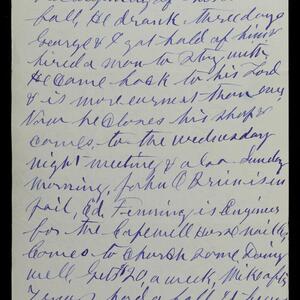 fall, He drank three days
George & I got hold of him &
hired a man to stay with
He came back to his Lord
& is more earnest than ever
Now he closes his shop &
comes to the Wednesday
night meeting & a Sunday
morning, John O is in
jail, Ed. Fenning is Engineer
for the Capewell Horse Nail Co,
Comes to church some Doing
well, gets $20, a week, Mike
had a